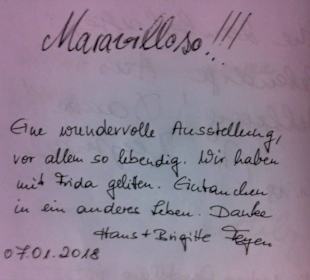 Maravilloso!!!
Eine wundervolle Ausstellung,
vor allem so lebendig. Wir haben
mit Frida geliten. Eintauchen
in ein anderes Leben. Danke
Hans + Brigitte
07.01.2018